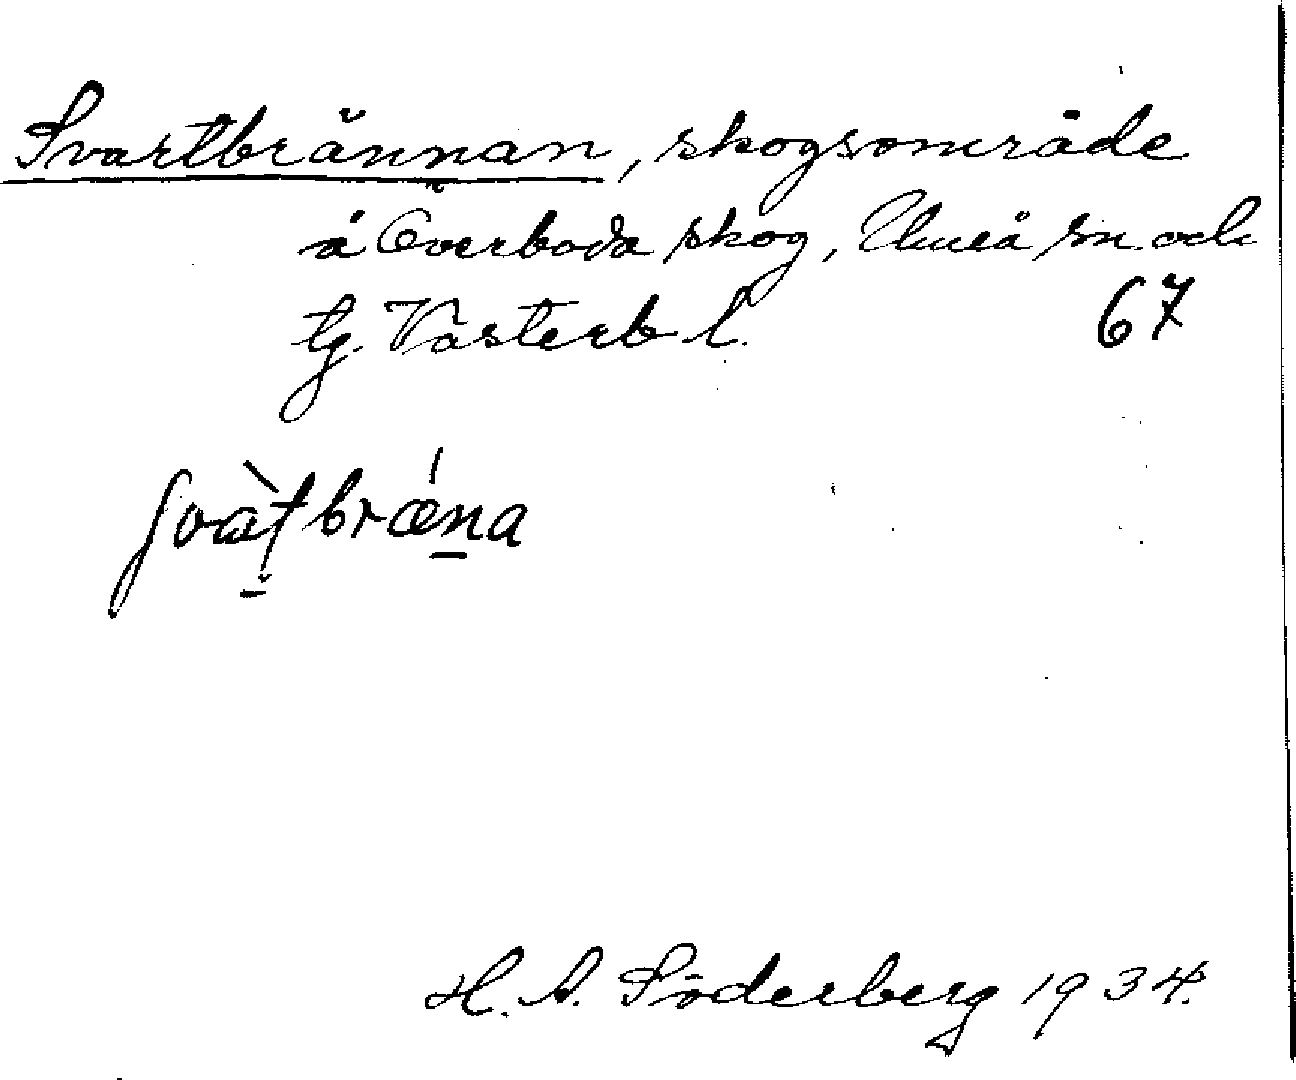 Svartbrännan, skogsområde
å Överboda skog, Umeå sn och
tg. Västerb l. 67
svàt̬brǽna
H. A. Söderberg 1934.